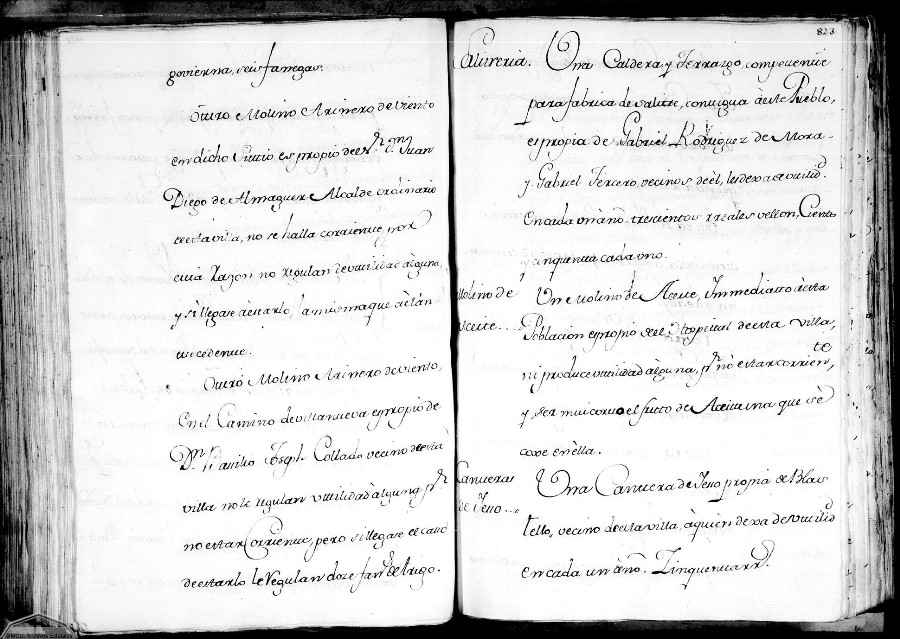 govierna, seis fanegas.
Ôtro Molino Arinero de viento
en dicho Sittio es propio de el Sr. Dn. Juan
Diego de Almaguer Alcalde ordinario
de esta villa, no se halla corriente, por
cuia razon no regulan de vttilidad alguna,
y si llegase à estarlo, la misma que àl an
tecedente.
Ôttro Molino Arinero de viento,
en el Camino de villanueva es propio de
Dn. Joseph Collado vecino de esta
villa no le regulan vttilidad alguna pr.
no estar Corriente, pero si llegase el caso
de estarlo le regulan doze fans. de trigo.
823
Salitreria. Una Caldera, y Terrazgo, competente
para fabrica de salitre, contigua à este Pueblo,
es propia de Gabriel Rodriguez de Mora
y Gabriel Tercero, vecinos de èl, les dexa de vtilid.
en cada un año trescientos rreales vellon, Ciento
cinquenta cada vno.
Molino de Un Molino de Aceite, Immediatto à esta
Aceite... Poblacion es propio de el Hospital de esta villa,
ni produce vttilidad alguna, pr. nò estar corriente,
y ser mui corto el frutto de Aceituna que sè
coxe en ella.
Canteras Una Cantera de Yesso propria de Blas
de Yesso... tello, vecino de esta villa, à quien dexa de vttilid
en cada un año Zinquenta rr.
©MCU. Archivos Estatales